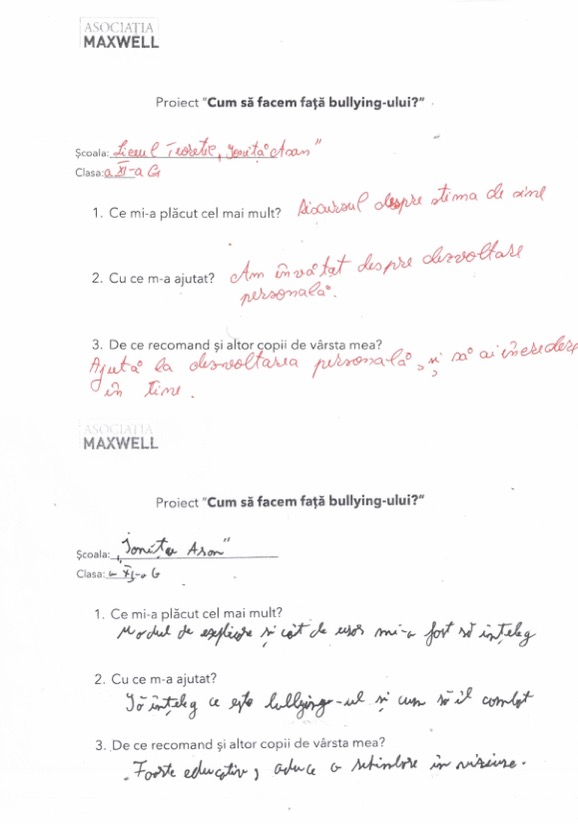 ASOCIAȚIA
MAXWELL
Proiect "Cum să facem față bullying-ului?"
Școala: Liceul Teoretic „Ioniță Asan"
Clasa: a XI-a G
1. Ce mi-a plăcut cel mai mult? Discursul despre stima de sine
2. Cu ce m-a ajutat? Am învățat despre dezvoltare
personală.
3. De ce recomand și altor copii de vârsta mea?
Ajută la dezvoltarea personală, și să ai încredere
în tine.
ASOCIAȚIA
MAXWELL
Proiect "Cum să facem față bullying-ului?"
Școala: „Ioniță Asan"
Clasa: a XI-a G
1. Ce mi-a plăcut cel mai mult?
Modul de explicare și cât de ușor mi-a fost să înțeleg
2. Cu ce m-a ajutat?
Să înțeleg ce este bullying-ul și cum să îl combat
3. De ce recomand și altor copii de vârsta mea?
Foarte educativ, aduce o schimbare în viziune.